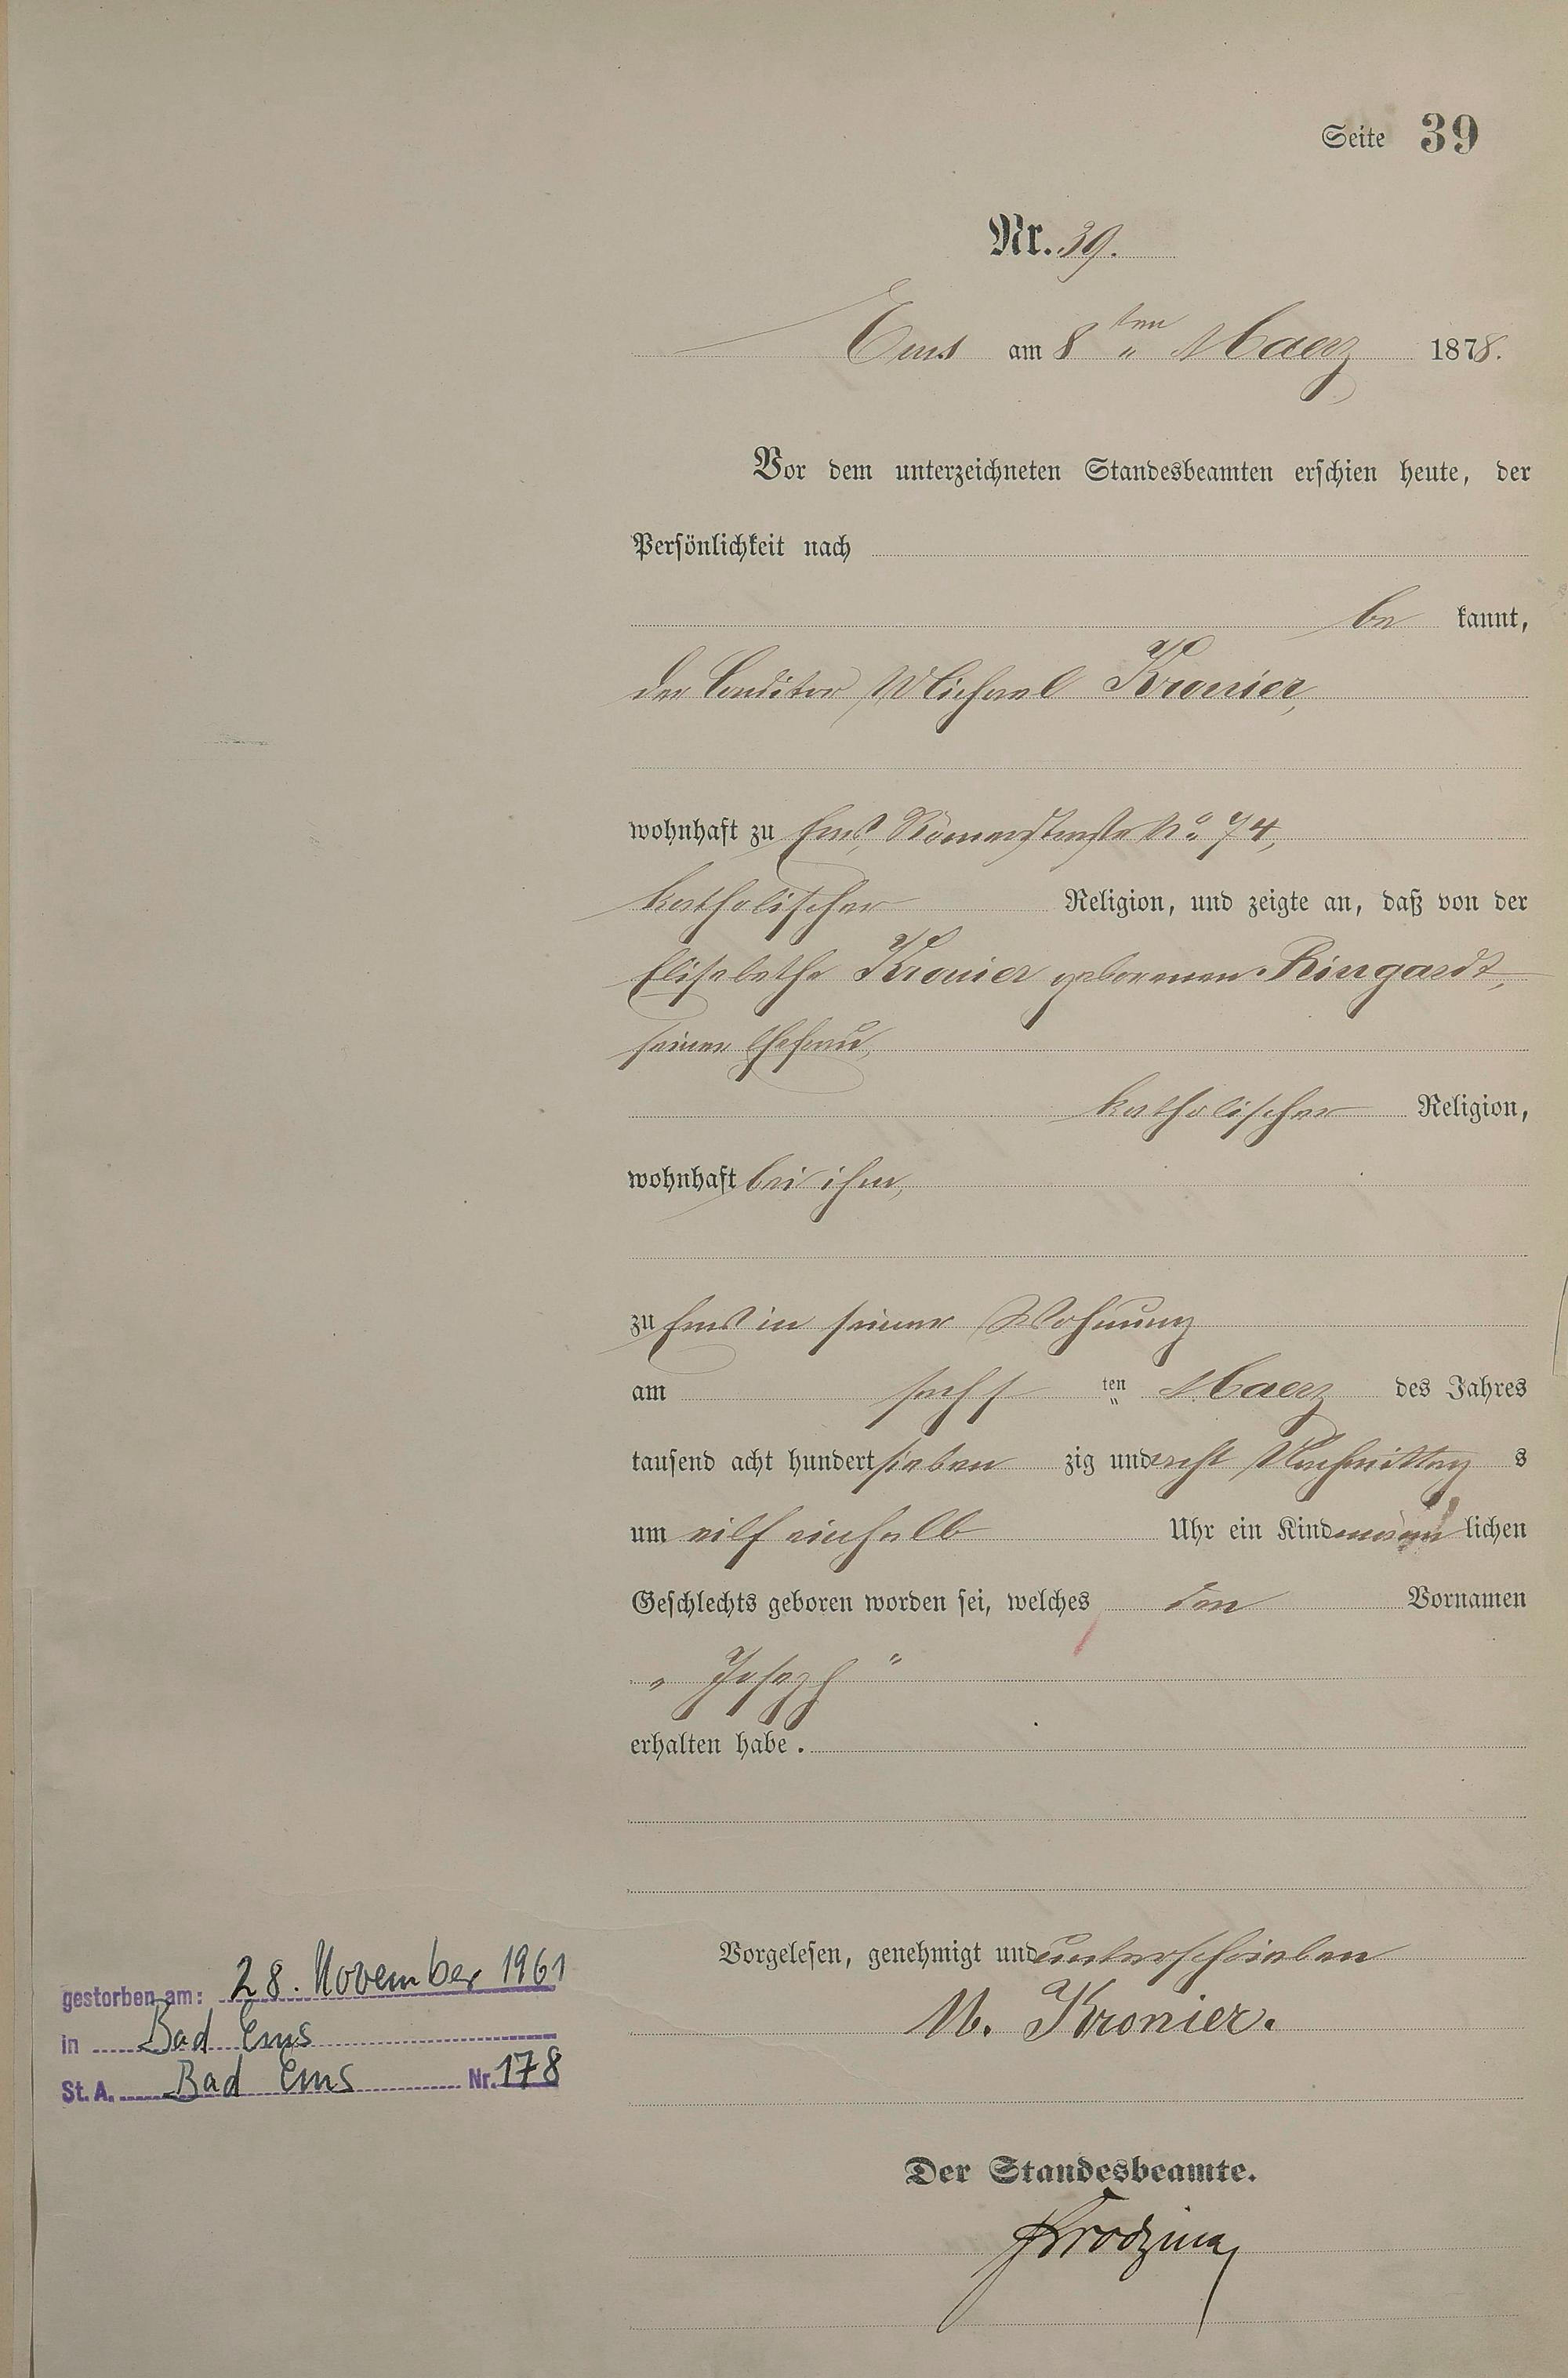 Seite 39
Nr. 39.
Ems am 8ten Maerz 1878.
Vor dem unterzeichneten Standesbeamten erschien heute, der
Persönlichkeit nach
be kannt,
der Conditor Michael Kronier,
wohnhaft zu Ems, Römerstraße No. 74,
katholischer Religion, und zeigte an, daß von der
Elisabethe Kronier geborenen Ringardt,
seiner Ehefrau,
katholischer Religion,
wohnhaft bei ihm,
zu Ems in seiner Wohnung
am sechs ten Maerz des Jahres
tausend acht hundert sieben zig und acht Nachmittag s
um eilf einhalb Uhr ein Kind männ lichen
Geschlechts geboren worden sei, welches den Vornamen
„Joseph"
erhalten habe.
Vorgelesen, genehmigt und unterschrieben
M. Kronier.
gestorben am: 28. November 1961
in Bad Ems
St. A. Bad Ems Nr. 178
Der Standesbeamte.